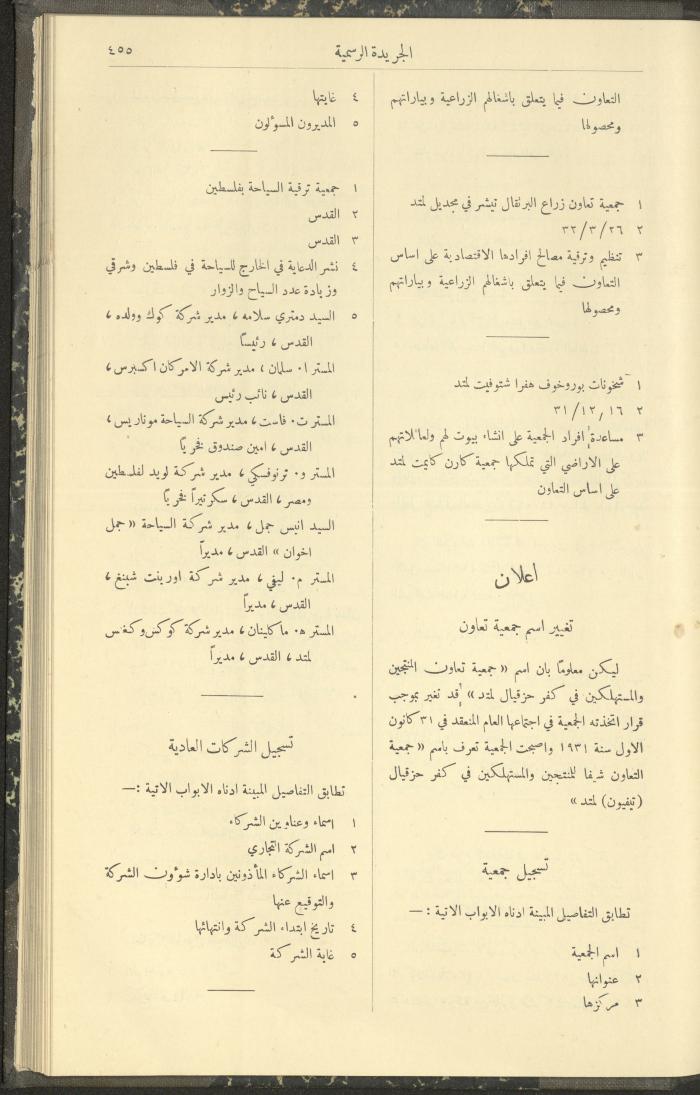 الجريدة الرسمية
٤٥٥
التعاون فيما يتعلق باشغالهم الزراعية وبياراتهم
ومحصولها
١ جمعية تعاون زراع البرتقال تيشر في مجديل لمتد
٢ ٣٢/٣/٢٦
٣ تنظيم وترقية مصالح افرادها الاقتصادية على اساس
التعاون فيما يتعلق باشغالهم الزراعية وبياراتهم
ومحصولها
١ شخونات بوروخوف هفرا شتوفيت لمتد
٢ ٣١/١٢/١٦
٣ مساعدة افراد الجمعية على انشاء بيوت لهم ولعائلاتهم
على الاراضي التي تملكها جمعية كارن كايمت لمتد
على اساس التعاون
اعلان
تغيير اسم جمعية تعاون
ليكن معلوماً بان اسم « جمعية تعاون المنتجين
والمستهلكين في كفر حزقيال لمتد » قد تغير بموجب
قرار اتخذته الجمعية في اجتماعها العام المنعقد في ٣١ كانون
الاول سنة ١٩٣١ واصبحت الجمعية تعرف باسم « جمعية
التعاون شيفا للمنتجين والمستهلكين في كفر حزقيال
(تيفيون) لمتد »
تسجيل جمعية
تطابق التفاصيل المبينة ادناه الابواب الاتية :—
١ اسم الجمعية
٢ عنوانها
٣ مركزها
٤ غايتها
٥ المديرون المسؤلون
١ جمعية ترقية السياحة بفلسطين
٢ القدس
٣ القدس
٤ نشر الدعاية في الخارج للسياحة في فلسطين وشرقي
وزيادة عدد السياح والزوار
٥ السيد دمتري سلامه ، مدير شركة كوك وولده ،
القدس ، رئيساً
المستر ا. سلمان ، مدير شركة الامركان اكسبرس ،
القدس ، نائب رئيس
المستر ت. فاست ، مدير شركة السياحة موناريس ،
القدس ، امين صندوق فخرياً
المستر و. ترنوفسكي ، مدير شركة لويد لفلسطين
ومصر ، القدس ، سكرتيراً فخرياً
السيد انيس جمل ، مدير شركة السياحة « جمل
اخوان » القدس ، مديراً
المستر م. ليفي ، مدير شركة اورينت شبنغ ،
القدس ، مديراً
المستر ه. ماكلينان ، مدير شركة كوكس وكنغس
لمتد ، القدس ، مديراً
تسجيل الشركات العادية
تطابق التفاصيل المبينة ادناه الابواب الاتية :—
١ اسماء وعناوين الشركاء
٢ اسم الشركة التجاري
٣ اسماء الشركاء المأذونين بادارة شوؤن الشركة
والتوقيع عنها
٤ تاريخ ابتداء الشركة وانتهائها
٥ غاية الشركة